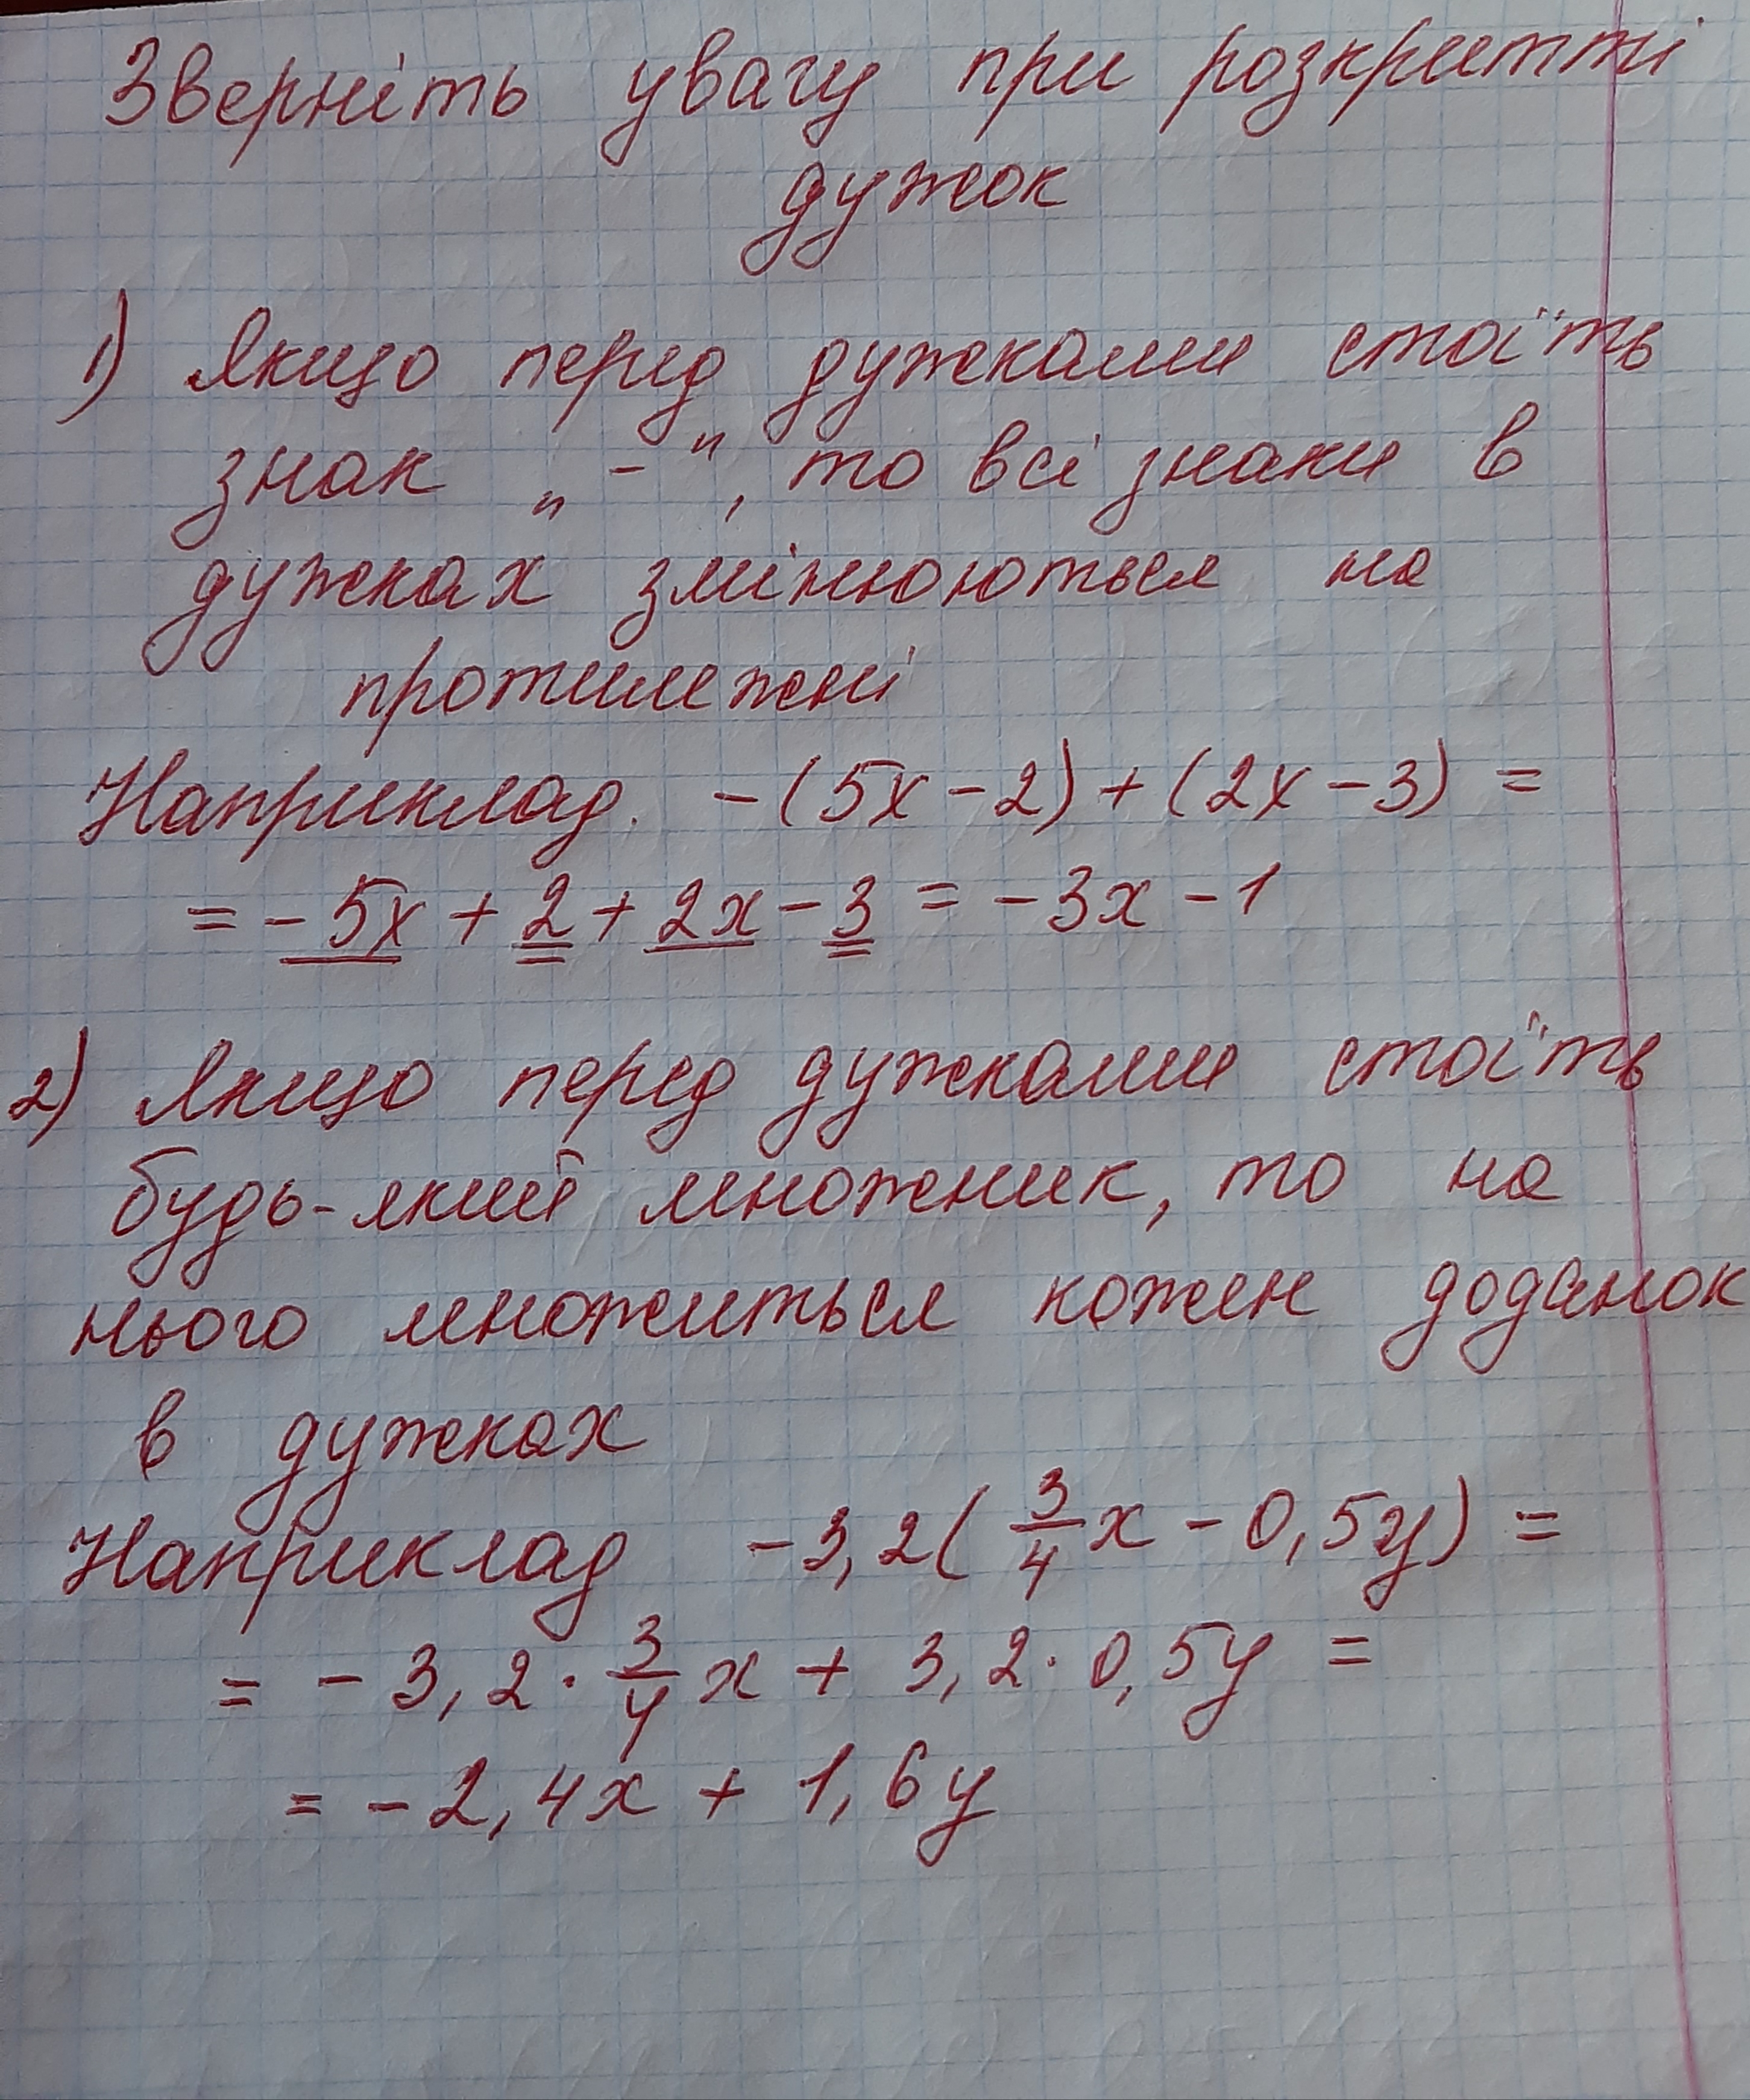 Зверніть увагу при розкритті
дужок
1) Якщо перед дужками стоїть
знак „-", то всі знаки в
дужках змінюються на
протилежні
Наприклад. -(5x-2)+(2x-3)=
= -5x+2+2x-3 = -3x-1
2) Якщо перед дужками стоїть
будь-який множник, то на
нього множиться кожен доданок
в дужках
Наприклад -3,2(3/4x-0,5y)=
= -3,2·3/4x+3,2·0,5y=
= -2,4x+1,6y